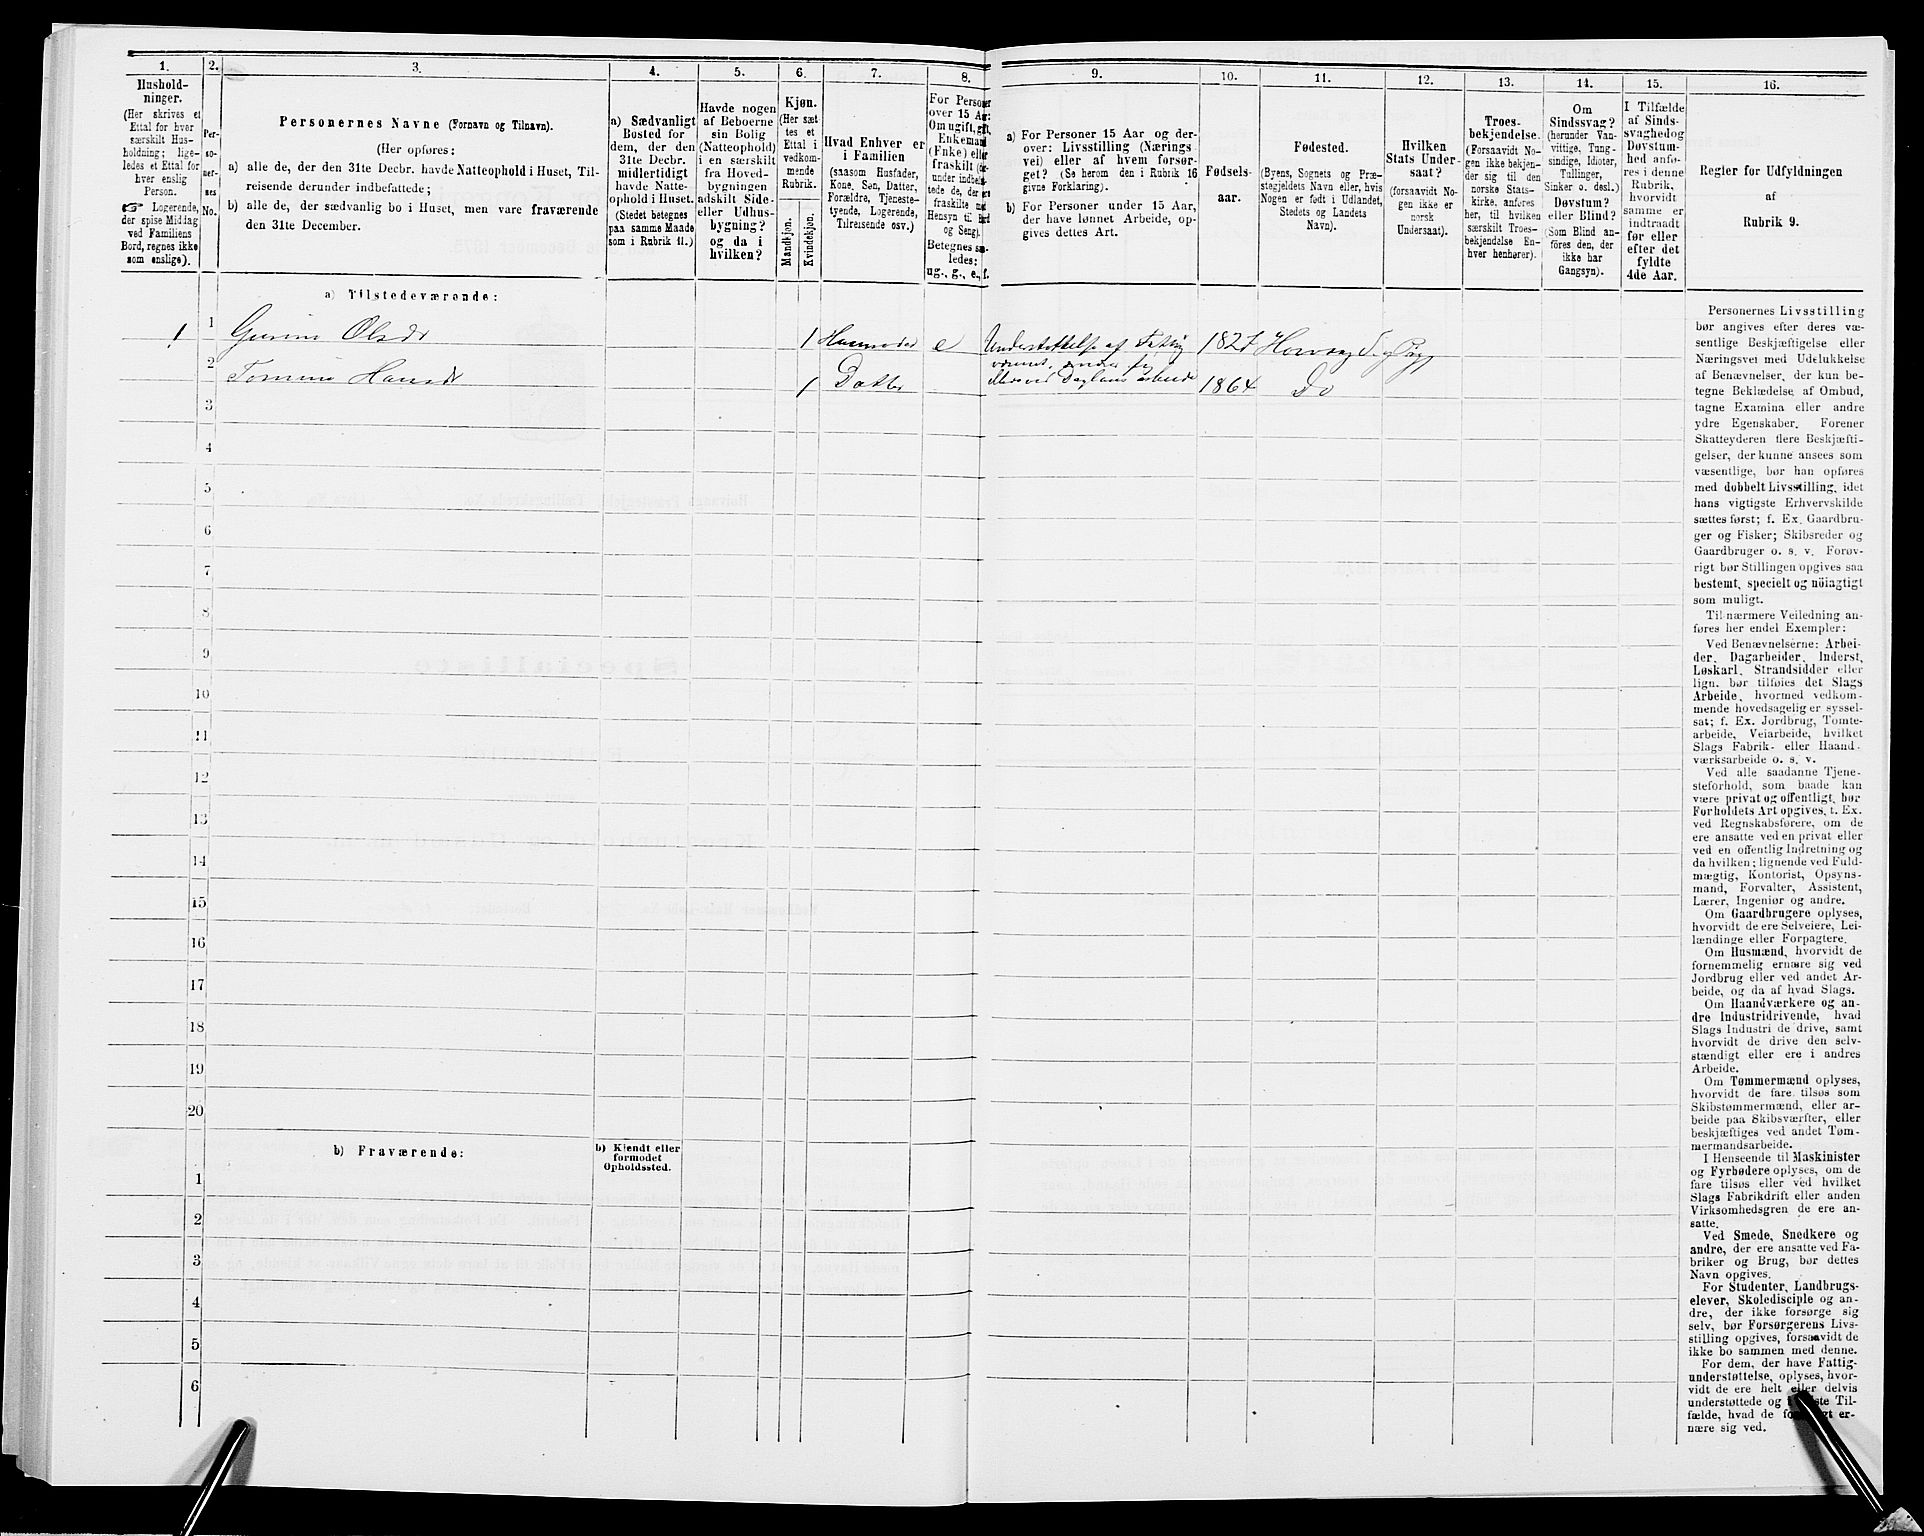 1.
Hushold-
ninger.
(Her skrives et
Ettal for hver
særskilt Hus-
holdning; lige-
ledes et Ettal for
hver enslig
Person.
☞ Logerende,
der spise Middag
ved Familiens
Bord, regnes ikke
som enslige).
2.
Per-
so-
ner-
nes
No.
3.
Personernes Navne (Fornavn og Tilnavn).
(Her opføres:
a) alle de, der den 31te Decbr. havde Natteophold i Huset, Til-
reisende derunder indbefattede;
b) alle de, der sædvanlig bo i Huset, men vare fraværende
den 31te December.
4.
a) Sædvanligt
Bosted for
dem, der den
31te Decbr.
midlertidigt
havde Natte-
ophold i Huset.
(Stedet betegnes
paa samme Maade
som i Rubrik 11.)
5.
Havde nogen
af Beboerne
sin Bolig
(Natteophold)
i en særskilt
fra Hoved-
bygningen
adskilt Side-
eller Udhus-
bygning?
og da i
hvilken?
6.
Kjøn.
(Her sæt-
tes et
Ettal i
vedkom-
mende
Rubrik.
Mandkjøn.
Kvindekjøn.
7.
Hvad Enhver er
i Familien
(saasom Husfader,
Kone, Søn, Datter,
Forældre, Tjeneste-
tyende, Logerende,
Tilreisende osv.)
8.
For Personer
over 15 Aar:
Om ugift, gift,
Enkemand
(Enke) eller
fraskilt
Betegnes saa-
ledes:
ug., g., e., f.
9.
a) For Personer 15 Aar og der-
over: Livsstilling (Nærings
vei) eller af hvem forsør-
get? (Se herom den i Rubrik 16
givne Forklaring).
b) For Personer under 15 Aar,
der have lønnet Arbeide, op-
gives dettes Art.
10.
Fødsels-
aar.
11.
Fødested.
(Byens, Sognets og Præ-
stegjeldets Navn eller, hvis
Nogen er født i Udlandet,
Stedets og Landets
Navn).
12.
Hvilken
Stats Under-
saat?
(forsaavidt No-
gen ikke er
norsk
Undersaat).
13.
Troes-
bekjendelse.
(Forsaavidt No-
gen ikke bekjen-
der sig til den
norske Stats-
kirke, anføres
her, til hvilken
særskilt Troes-
bekjendelse En-
hver henhører).
14.
Om
Sindssvag?
(herunder Van-
vittige, Tung-
sindige, Idioter,
Tullinger,
Sinker o. desl.)
Døvstum?
eller Blind?
(Som Blind an-
føres den, der
ikke har
Gangsyn).
15.
I Tilfælde
af Sinds-
svaghed og
Døvstum-
hed anfø-
res i denne
Rubrik,
hvorvidt
samme er
indtraadt
før eller
efter det
fyldte
4de Aar.
16.
Regler for Udfyldningen
af
Rubrik 9.
a) Tilstedeværende:
1 1 Gunine Olsdr 1 Husmoder e Understøttelse af Fattig 1827
2 Tomine Hansdr 1 Datter 1864 Do
3
4
5
6
7
8
9
10
11
12
13
14
15
16
17
18
19
20
b) Fraværende:
b) Kjendt eller
formodet
Opholdssted.
1
2
3
4
5
6
Personernes Livsstilling
bør angives efter deres væ-
sentlige Beskjæftigelse eller
Næringsvei med Udelukkelse
af Benævnelser, der kun be-
tegne Beklædelse af Ombud,
tagne Examina eller andre
ydre Egenskaber. Forener
Skatteyderen flere Beskjæfti-
gelser, der kunne ansees som
væsentlige, bør han opføres
med dobbelt Livsstilling, idet
hans vigtigste Erhvervskilde
sættes først; f. Ex. Gaardbru-
ger og Fisker; Skibsreder og
Gaardbruger o. s. v. Forøv-
rigt bør Stillingen opgives saa
bestemt, specielt og nöiagtigt
som muligt.
Til nærmere Veiledning an-
føres her endel Exempler:
Ved Benævnelserne: Arbei-
der, Dagarbeider, Inderst,
Løskarl, Strandsidder eller
lign. bør tilføies det Slags
Arbeide, hvormed vedkom-
mende hovedsagelig er syssel-
sat; f. Ex. Jordbrug, Tomte-
arbeide, Veiarbeide, hvilket
Slags Fabrik- eller Haand-
værksarbeide o. s. v.
Ved alle saadanne Tjene-
steforhold, som baade kan
være privat og offentligt, bør
Forholdets Art opgives, t. Ex.
ved Regnskabsførere, om de
ere ansatte ved en privat eller
ved en offentlig Indretning og
da hvilken; lignende ved Fuld-
mægtig, Kontorist, Opsyns-
mand, Forvalter, Assistent,
Lærer, Ingeniør og andre.
Om Gaardbrugere oplyses,
hvorvidt de ere Selveiere, Lei-
lændinge eller Forpagtere.
Om Husmænd, hvorvidt de
fornemmelig ernære sig ved
Jordbrug eller ved andet Ar-
beide, og da af hvad Slags.
Om Haandværkere og an-
dre Industridrivende, hvad
Slags Industri de drive, samt
hvorvidt de drive den selv-
stændigt eller ere i andres
Arbeide.
Om Tømmermænd oplyses,
hvorvidt de fare tilsøs som
Skibstømmermænd, eller ar-
beide paa Skibsværfter, eller
beskjæftiges ved andet Tøm-
mermandsarbeide.
I Henseende til Maskinister
og Fyrbødere oplyses, om de
fare tilsøs eller ved hvilket
Slags Fabrikdrift eller anden
Virksomhedsgren de ere an-
satte.
Ved Smede, Snedkere og
andre, der ere ansatte ved Fa-
briker og Brug, bør dettes
Navn opgives.
For Studenter, Landbrugs-
elever, Skoledisciple og an-
dre, der ikke forsørge sig
selv, bør Forsørgerens Livs-
stilling opgives, forsaavidt de
ikke bo sammen med denne.
For dem, der have Fattig-
understøttelse, oplyses, hvor-
vidt de ere helt eller delvis
understøttede og i Til-
fælde, hvad de er-
nære sig ved.